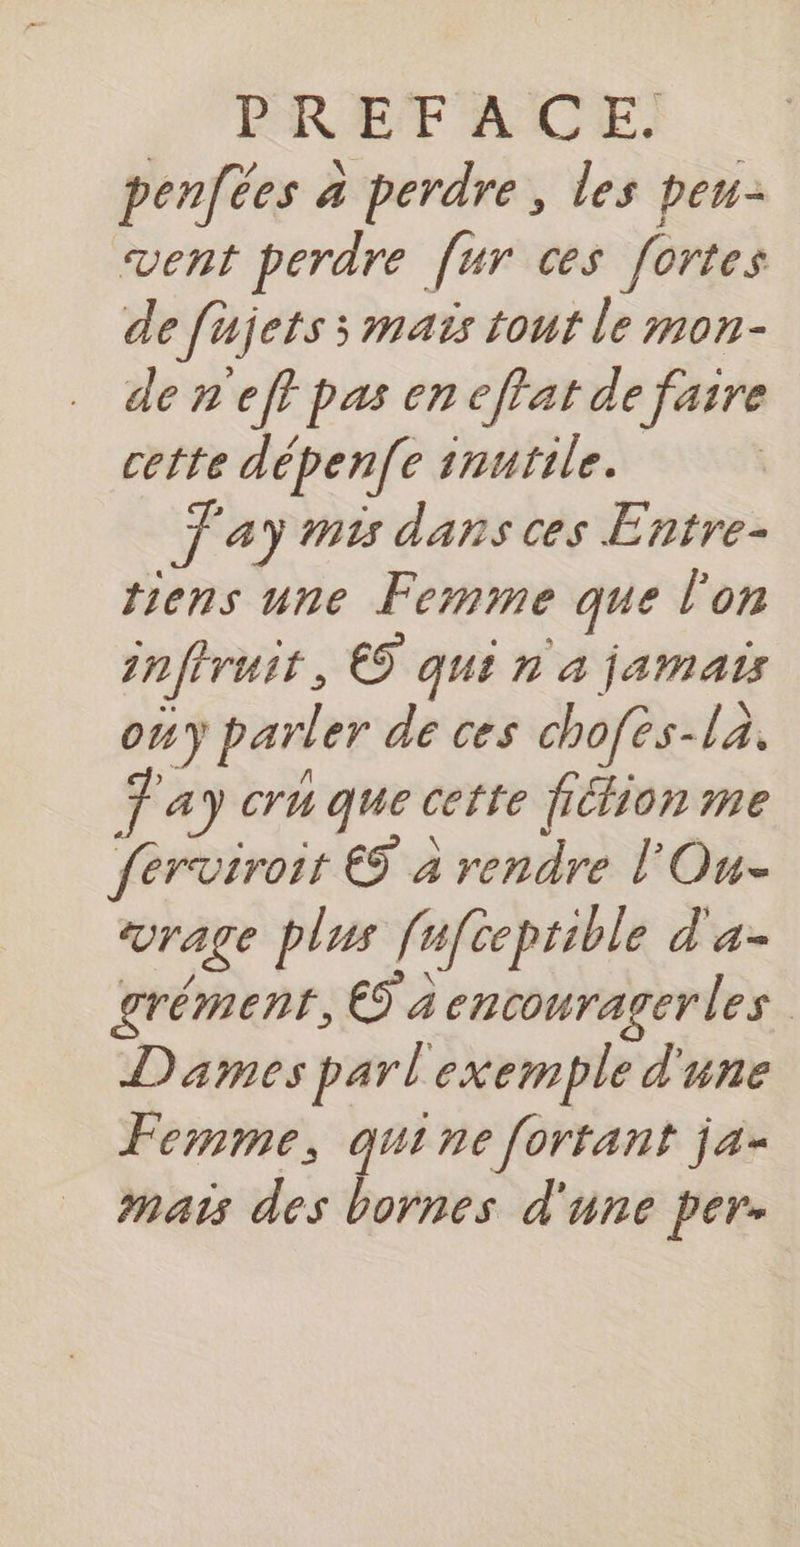 PREFACE.
penſées à perdre, les peu-
vent perdre ſur ces ſortes
de ſujets; mais tout le mon-
de n'eſt pas en eſtat de faire
cette dépenſe inutile.
J'ay mis dans ces Entre-
tiens une Femme que l'on
inſtruit, & qui n'a jamais
oüy parler de ces choſes-là.
J'ay crû que cette fiction me
ſerviroit & à rendre l'Ou-
vrage plus ſuſceptible d'a-
grément, & à encourager les
Dames par l'exemple d'une
Femme, qui ne ſortant ja-
mais des bornes d'une per-